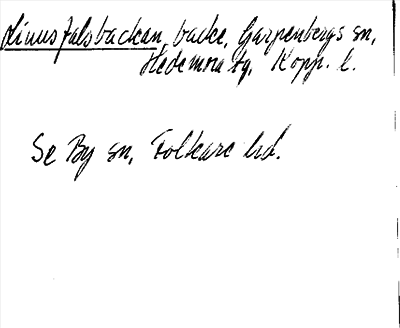 Linusfalsbackan, backe, Garpenbergs sn,
Hedemora tg, Kopp. l.
Se By sn, Folkare hd.